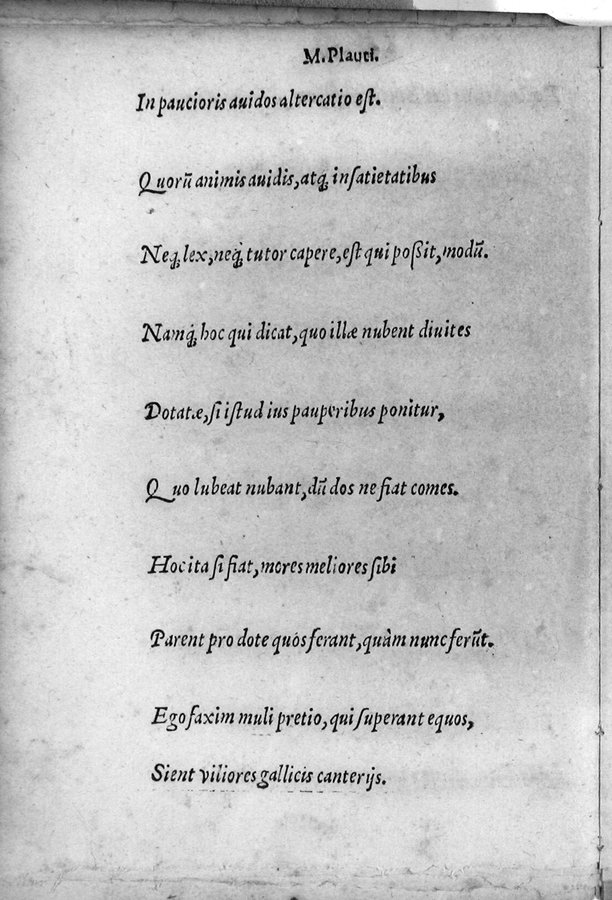 M. Plauti.
In paucioris auidos altercatio eſt.
Quorũ animis auidis, atq̃ inſatietatibus
Neq̃ lex, neq̃ tutor capere, eſt qui poſsit, modũ.
Namq̃ hoc qui dicat, quo illæ nubent diuites
Dotatæ, ſi iſtud ius pauperibus ponitur,
Quo lubeat nubant, dũ dos ne fiat comes.
Hoc ita ſi fiat, mores meliores ſibi
Parent pro dote quos ferant, quàm nunc ferũt.
Ego faxim muli pretio, qui ſuperant equos,
Sient viliores gallicis canterijs.